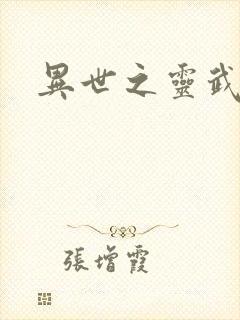 異世之靈武
張增霞